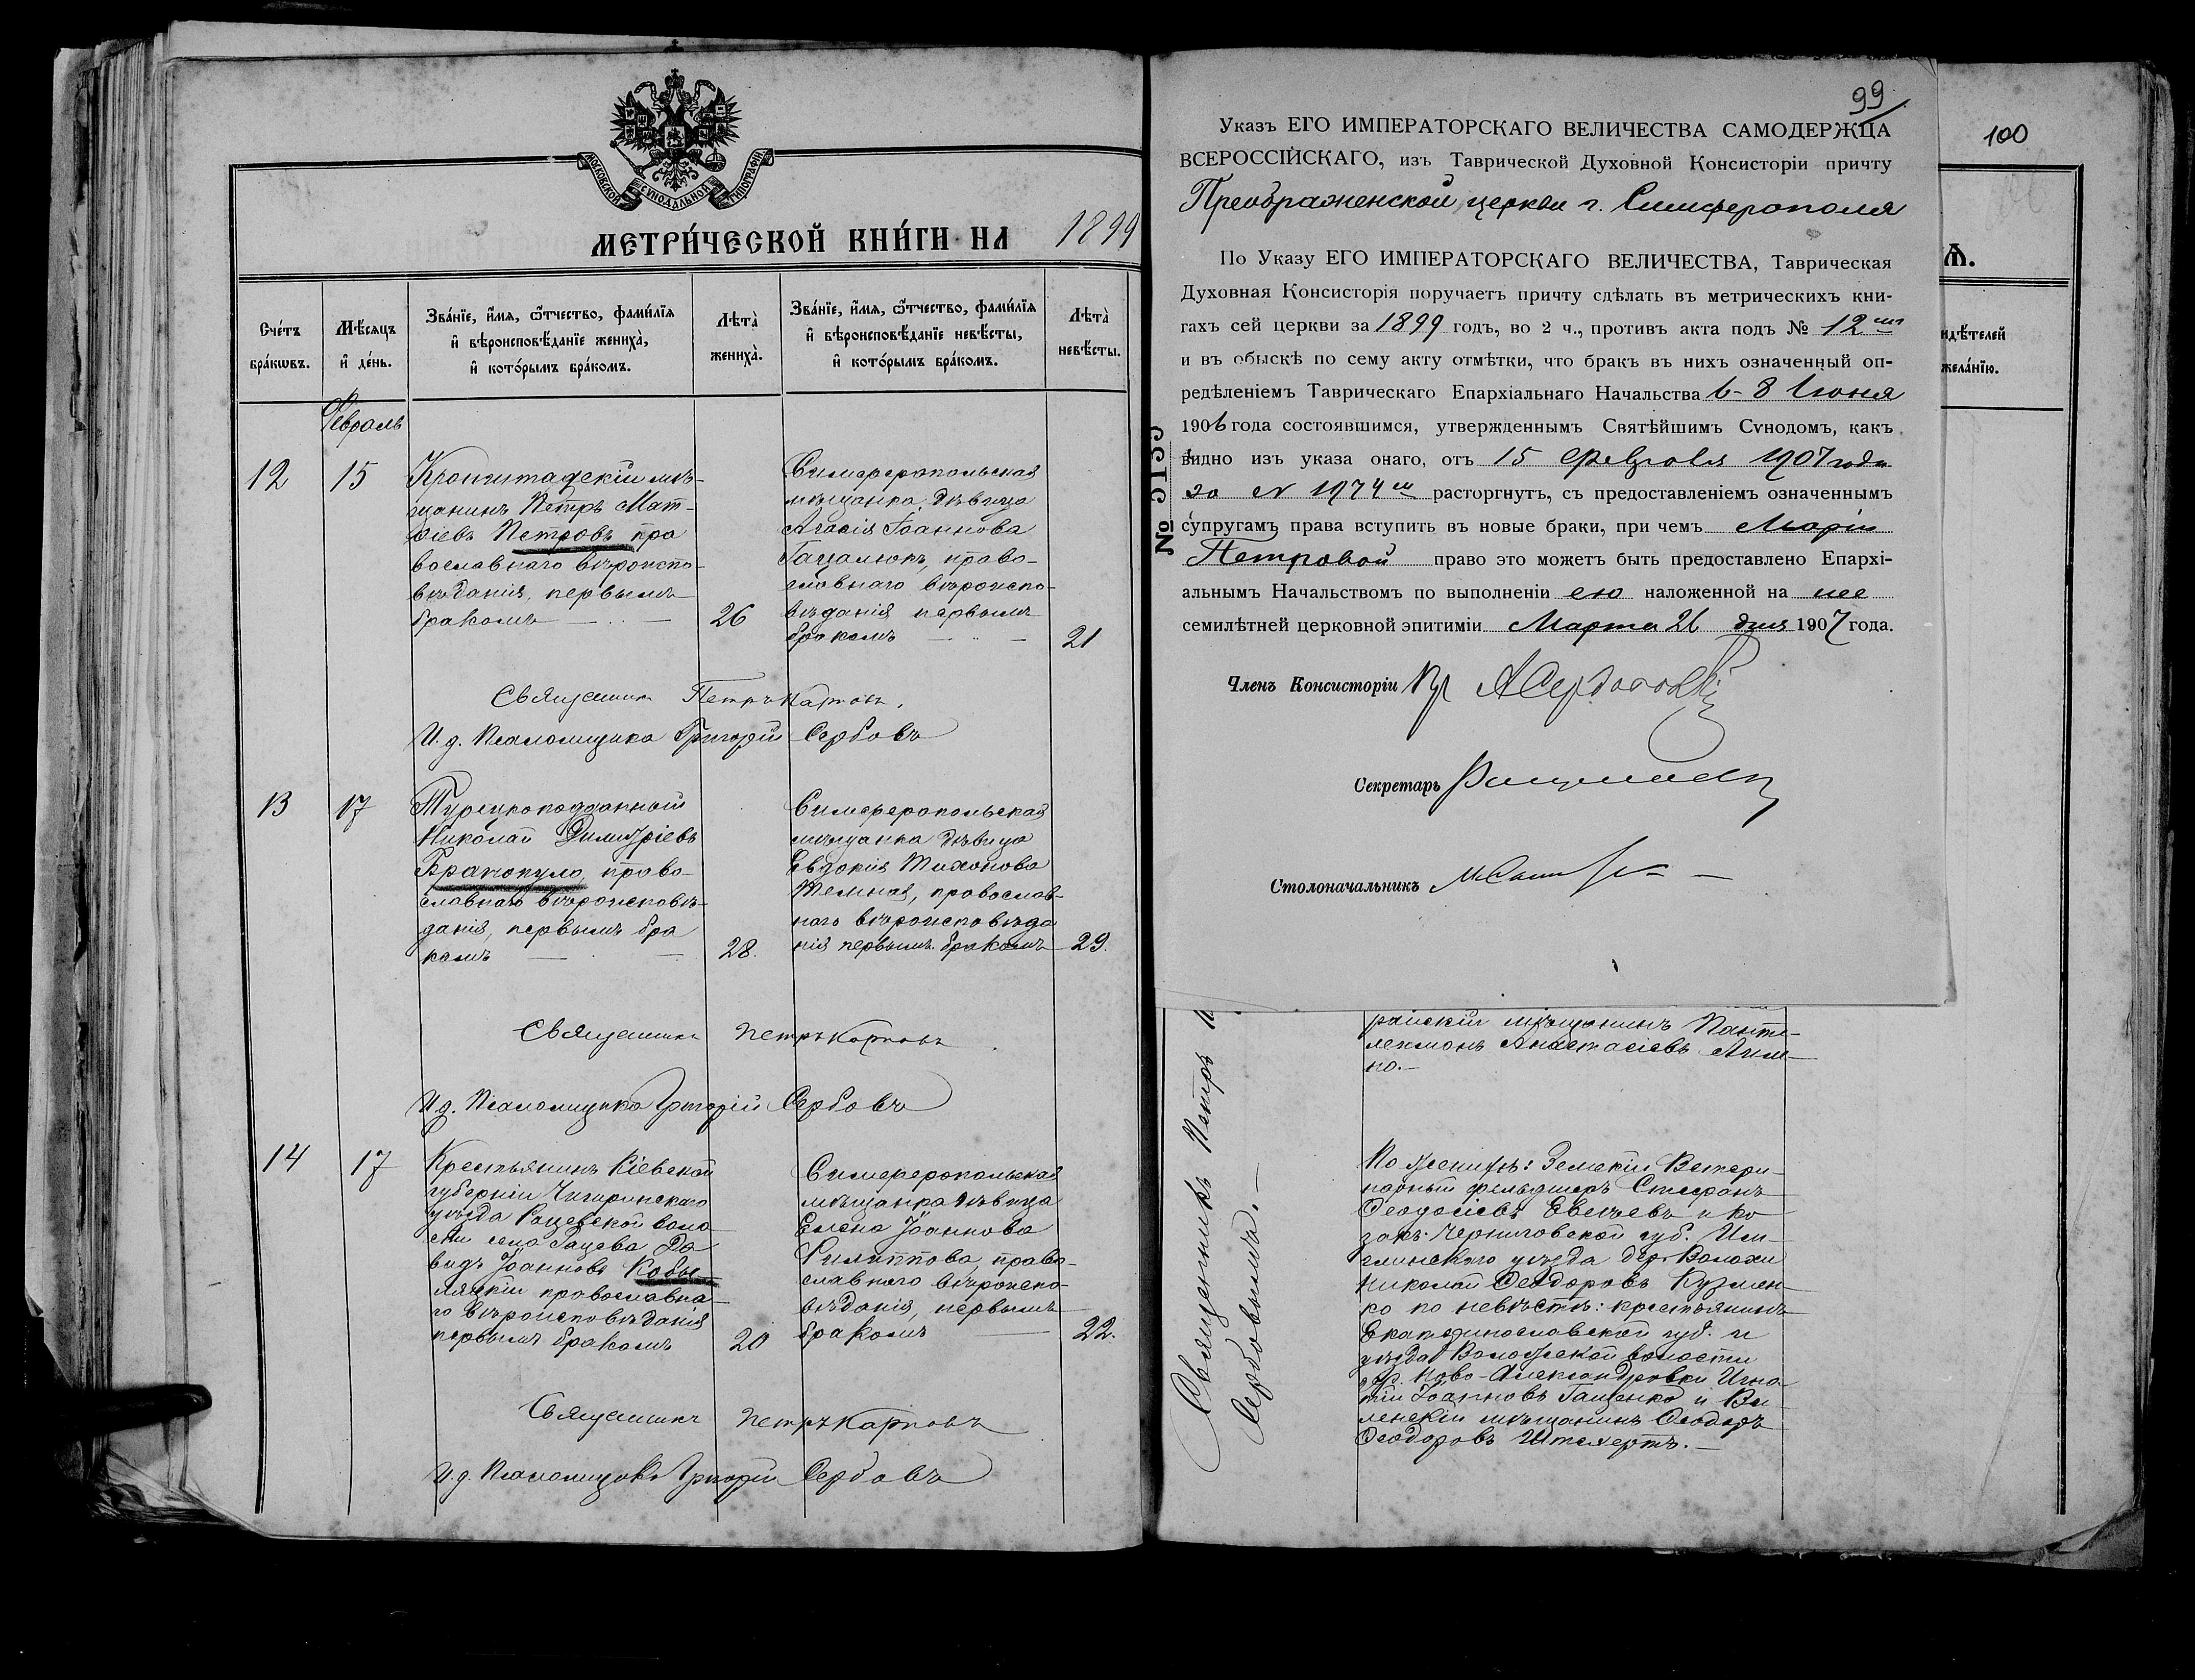 МОСКОВСКОЙ СѴНОДАЛЬНОЙ ТИПОГРАФІИ
МЕТРИ́ЧЕСКОЙ КНИ́ГИ НА 1899
Сче́тъ бра́кѡвъ.
Мѣ́сяцъ и҆ де́нь.
Зва́нїе, и҆́мя, ѻ҆́тчество, фами́лїя и҆ вѣроисповѣ́данїе жениха̀, и҆ кото́рымъ бра́комъ.
Лѣта̀ жениха̀.
Зва́нїе, и҆́мя, ѻ҆́тчество, фами́лїя и҆ вѣроисповѣ́данїе невѣ́сты, и҆ кото́рымъ бра́комъ.
Лѣта̀ невѣ́сты.
Февраль
12
15
Кронштадскій мѣ-
щанинъ Петръ Мат-
ѳіевъ Петровъ пра
вославнаго вѣроиспо-
вѣданія, первымъ
бракомъ
26
Симферопольская
мѣщанка, дѣвица
Іоаннова
право-
славнаго вѣроиспо-
вѣданія первымъ
бракомъ
21
Священникъ Петръ Карповъ.
И. д. Псаломщика Григорій Сербовъ
13
17
Турецкоподданный
Николай Димитріевъ
право-
славнаго вѣроисповѣ-
данія, первымъ бра
комъ
28.
Симферопольская
мѣщанка дѣвица
Евдокія Тихонова
Темная, православ-
наго вѣроисповѣда
нія первымъ бракомъ
29.
Священникъ Петръ Карповъ
И. д. Псаломщика Григорій Сербовъ
14
17
Крестьянинъ Кіевской
губерніи Чигиринскаго
уѣзда Рацевской воло
сти села Рацева Да
видъ Іоанновъ Кобы
ляцкій православна-
го вѣроисповѣданія
первымъ бракомъ
20
Симферопольская
мѣщанка дѣвица
Елена Іоаннова
Филиппова, право-
славнаго вѣроиспо-
вѣданія, первымъ
бракомъ
22.
Священникъ Петръ Карповъ
И. д. Псаломщика Григорій Сербовъ
99
Указъ ЕГО ИМПЕРАТОРСКАГО ВЕЛИЧЕСТВА САМОДЕРЖЦА
ВСЕРОССІЙСКАГО, изъ Таврической Духовной Консисторіи причту
Преображенской церкви г. Симферополя
По Указу ЕГО ИМПЕРАТОРСКАГО ВЕЛИЧЕСТВА, Таврическая
Духовная Консисторія поручаетъ причту сдѣлать въ метрическихъ кни-
гахъ сей церкви за 1899 годъ, во 2 ч., противъ акта подъ № 12
и въ обыскѣ по сему акту отмѣтки, что бракъ въ нихъ означенный оп-
редѣленіемъ Таврическаго Епархіальнаго Начальства 6-8 Іюня
1906 года состоявшимся, утвержденнымъ Святѣйшимъ Сѵнодомъ, какъ
видно изъ указа онаго, отъ 15 Февраля 1907 года
за № 1974 расторгнутъ, съ предоставленіемъ означеннымъ
супругамъ права вступить въ новые браки, при чемъ Маріи
Петровой право это можетъ быть предоставлено Епархі-
альнымъ Начальствомъ по выполненіи ею наложенной на нее
семилѣтней церковной эпитиміи Марта 26 дня 1907 года.
Членъ Консисторіи
Секретарь
Столоначальникъ
№
100
Ѧ.
идѣ́телей
жела́нїю.
мѣщанинъ Панте-
леимонъ Анастасіевъ
но.—
По женихѣ: Земскій Ветери-
нарный фельдшеръ Стефанъ
Ѳеодосіевъ и ка
закъ Черниговской губ.
уѣзда дер. Волохи
Николай Ѳеодоровъ Кузмен-
ко по невѣстѣ: крестьянинъ
Екатеринославской губ. и
уѣзда волости
дер. Ново-Александровки Игна-
тій Іоанновъ Гащенко и Ви-
ленскій мѣщанинъ Ѳеодоръ
Ѳеодоровъ
Священникъ Петръ
Сербовымъ.—